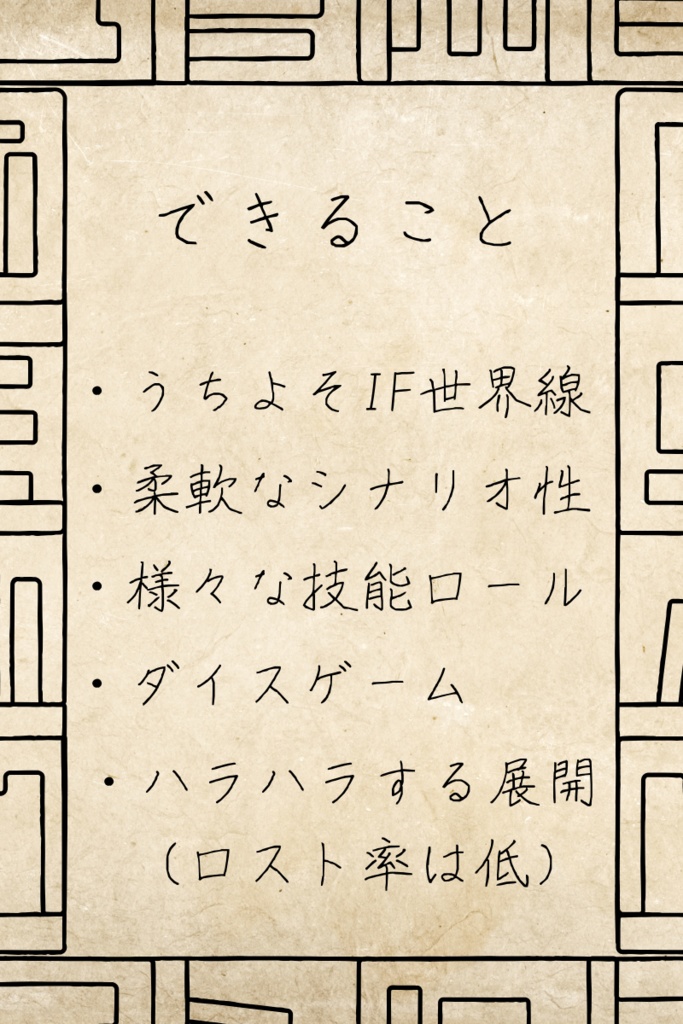 できること
・うちよそIF世界線
・柔軟なシナリオ性
・様々な技能ロール
・ダイスゲーム
・ハラハラする展開
(ロスト率は低)